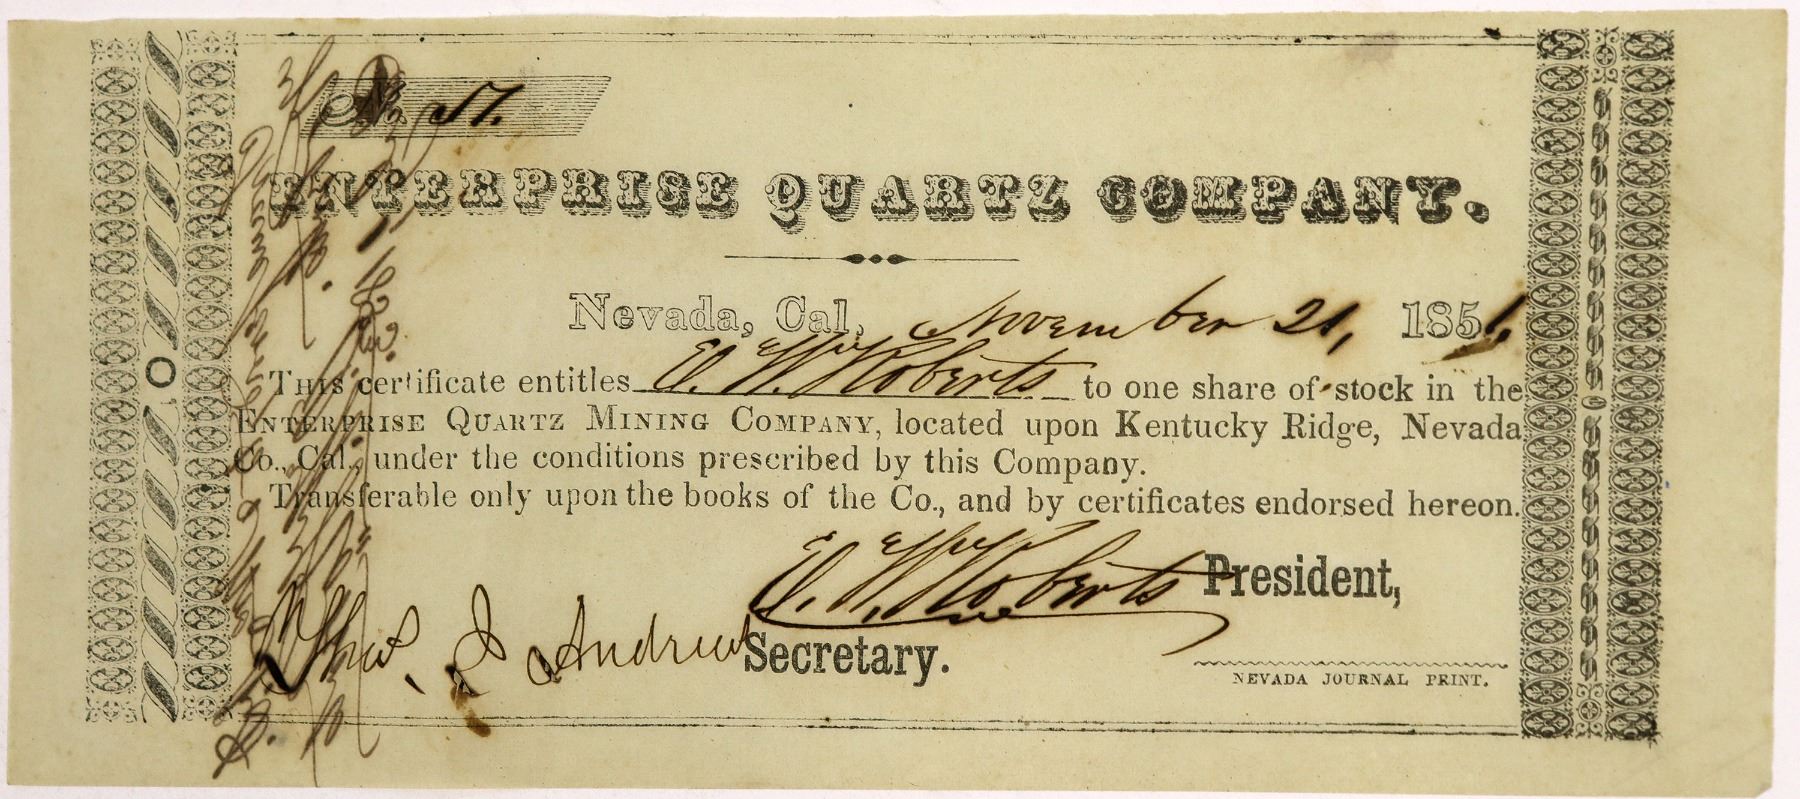 No. 57.
ENTERPRISE QUARTZ COMPANY.
Nevada, Cal, November 21, 1851,
THIS certificate entitles E. W. Roberts to one share of stock in the
ENTERPRISE QUARTZ MINING COMPANY, located upon Kentucky Ridge, Nevada
Co., Cal., under the conditions prescribed by this Company.
Transferable only upon the books of the Co., and by certificates endorsed hereon.
E. W. Roberts President,
Thos. J. Andrews Secretary.
NEVADA JOURNAL PRINT.